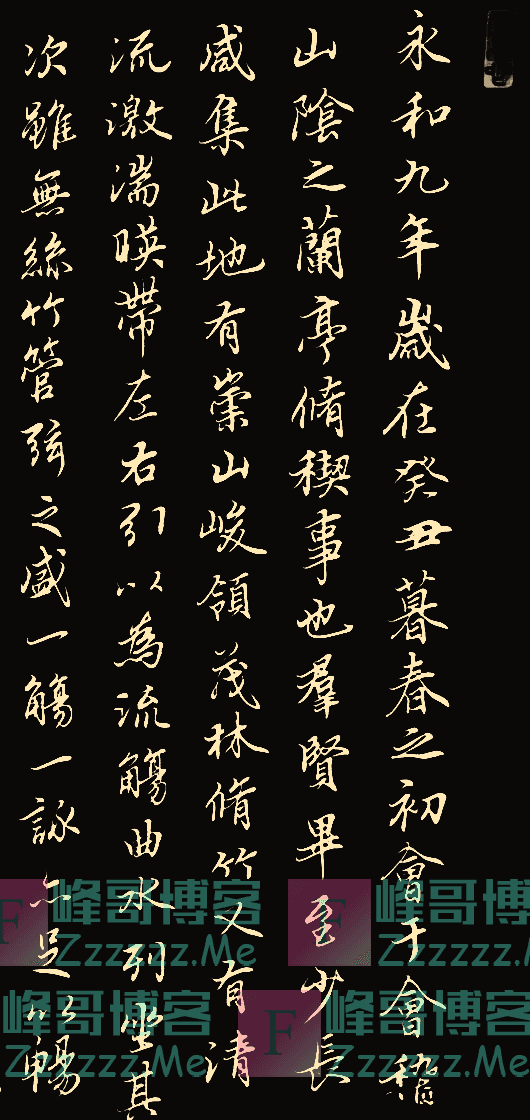 永和九年歲在癸丑暮春之初會于會稽
山陰之蘭亭脩稧事也羣賢畢至少長
咸集此地有崇山峻領茂林脩竹又有清
流激湍暎帶左右引以為流觴曲水列坐其
次雖無絲竹管弦之盛一觴一詠亦足以暢
峰哥博客
Zzzzzz.Me
F
峰哥博客
Zzzzzz.Me
F
峰哥博客
Zzzzzz.Me
F
峰哥博客
Zzzzzz.Me